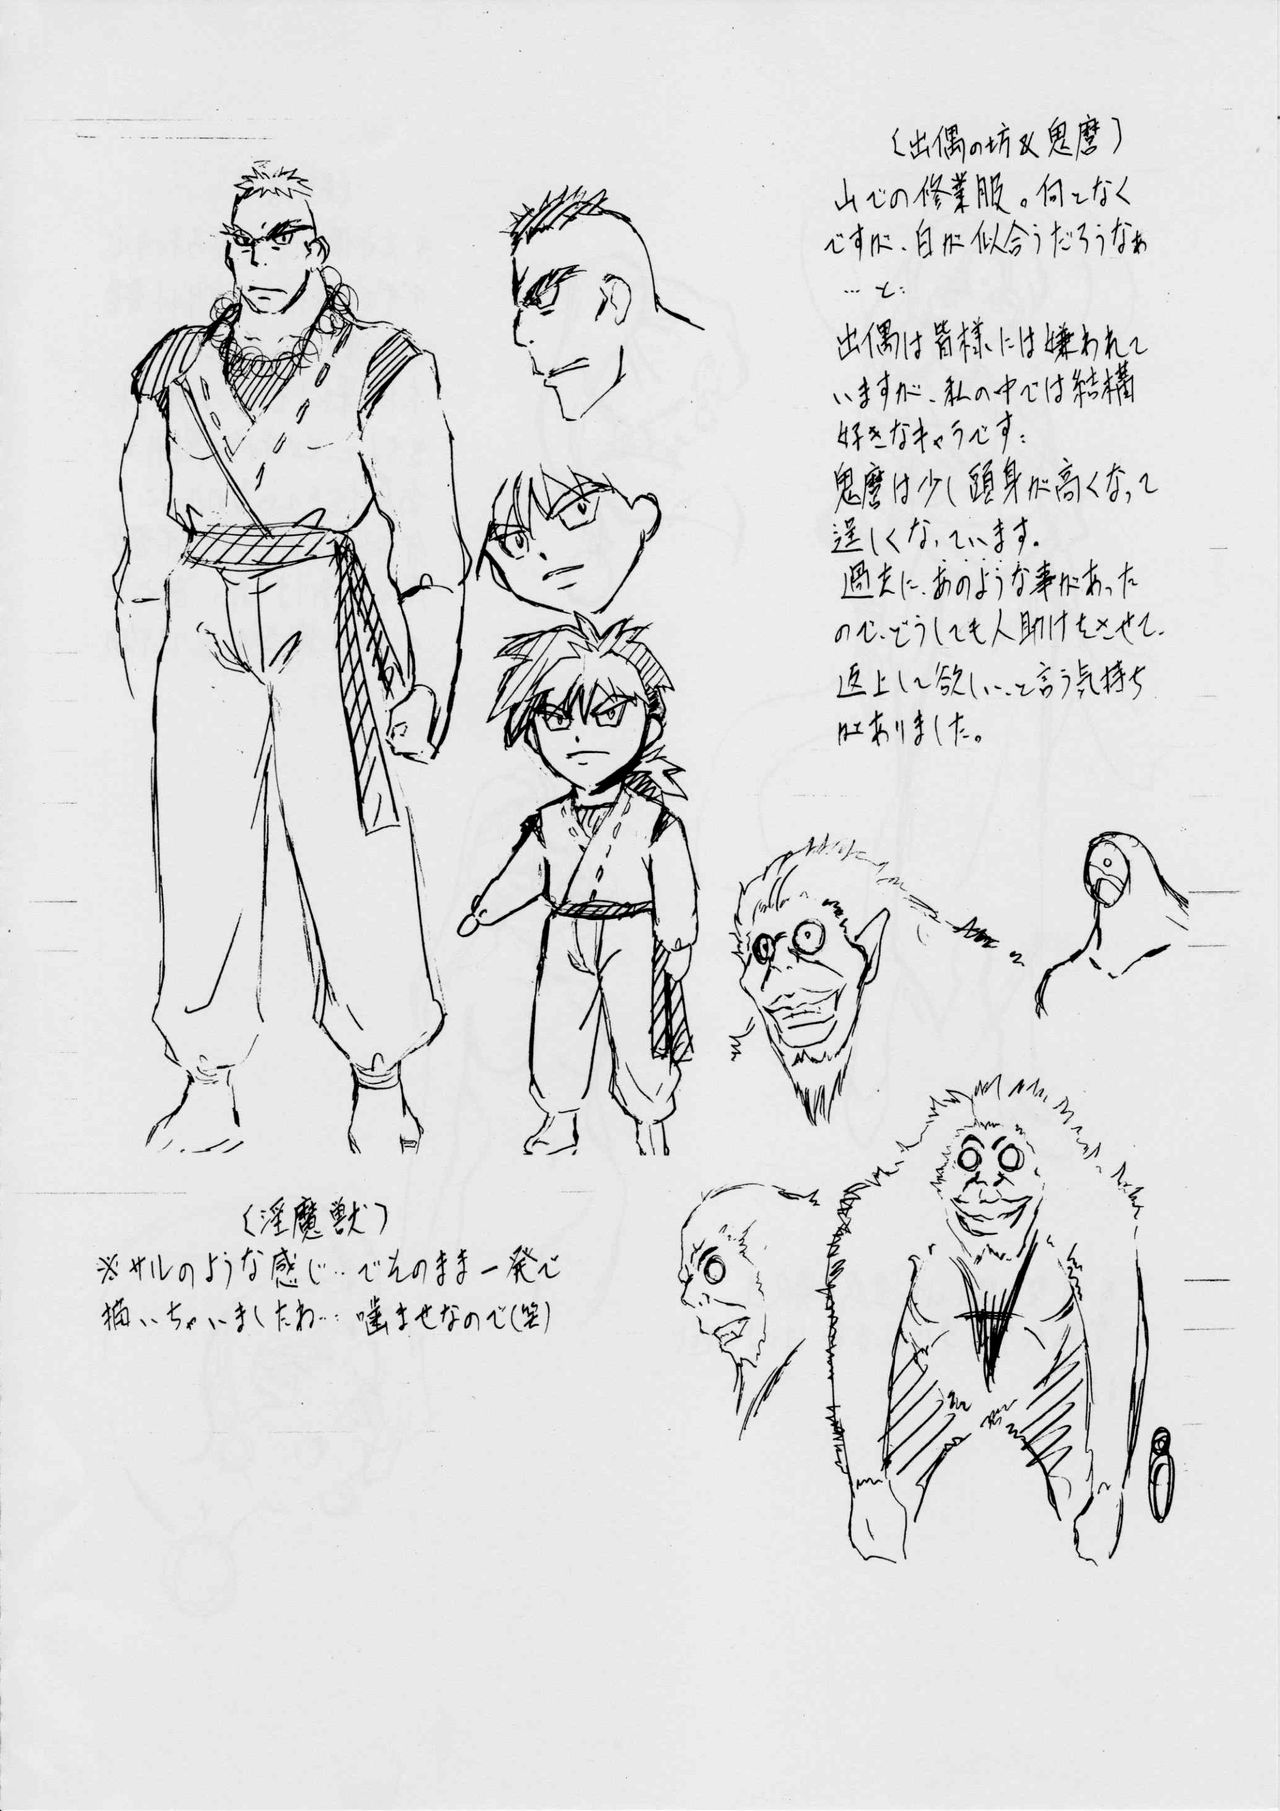 〈出偶の坊&鬼麿〉
山での修業服。何となく
ですが、白が似合うだろうなぁ
…と。
出偶は皆様には嫌われて
いますが、私の中では結構
好きなキャラです。
鬼麿は少し頭身が高くなって
逞しくなっています。
過去に、あのような事があった
ので、どうしても人助けをさせて、
返上して欲しい、と言う気持ち
はありました。
〈淫魔獣〉
※サルのような感じ…でそのまま一発で
描いちゃいましたね… 噛ませなので(笑)